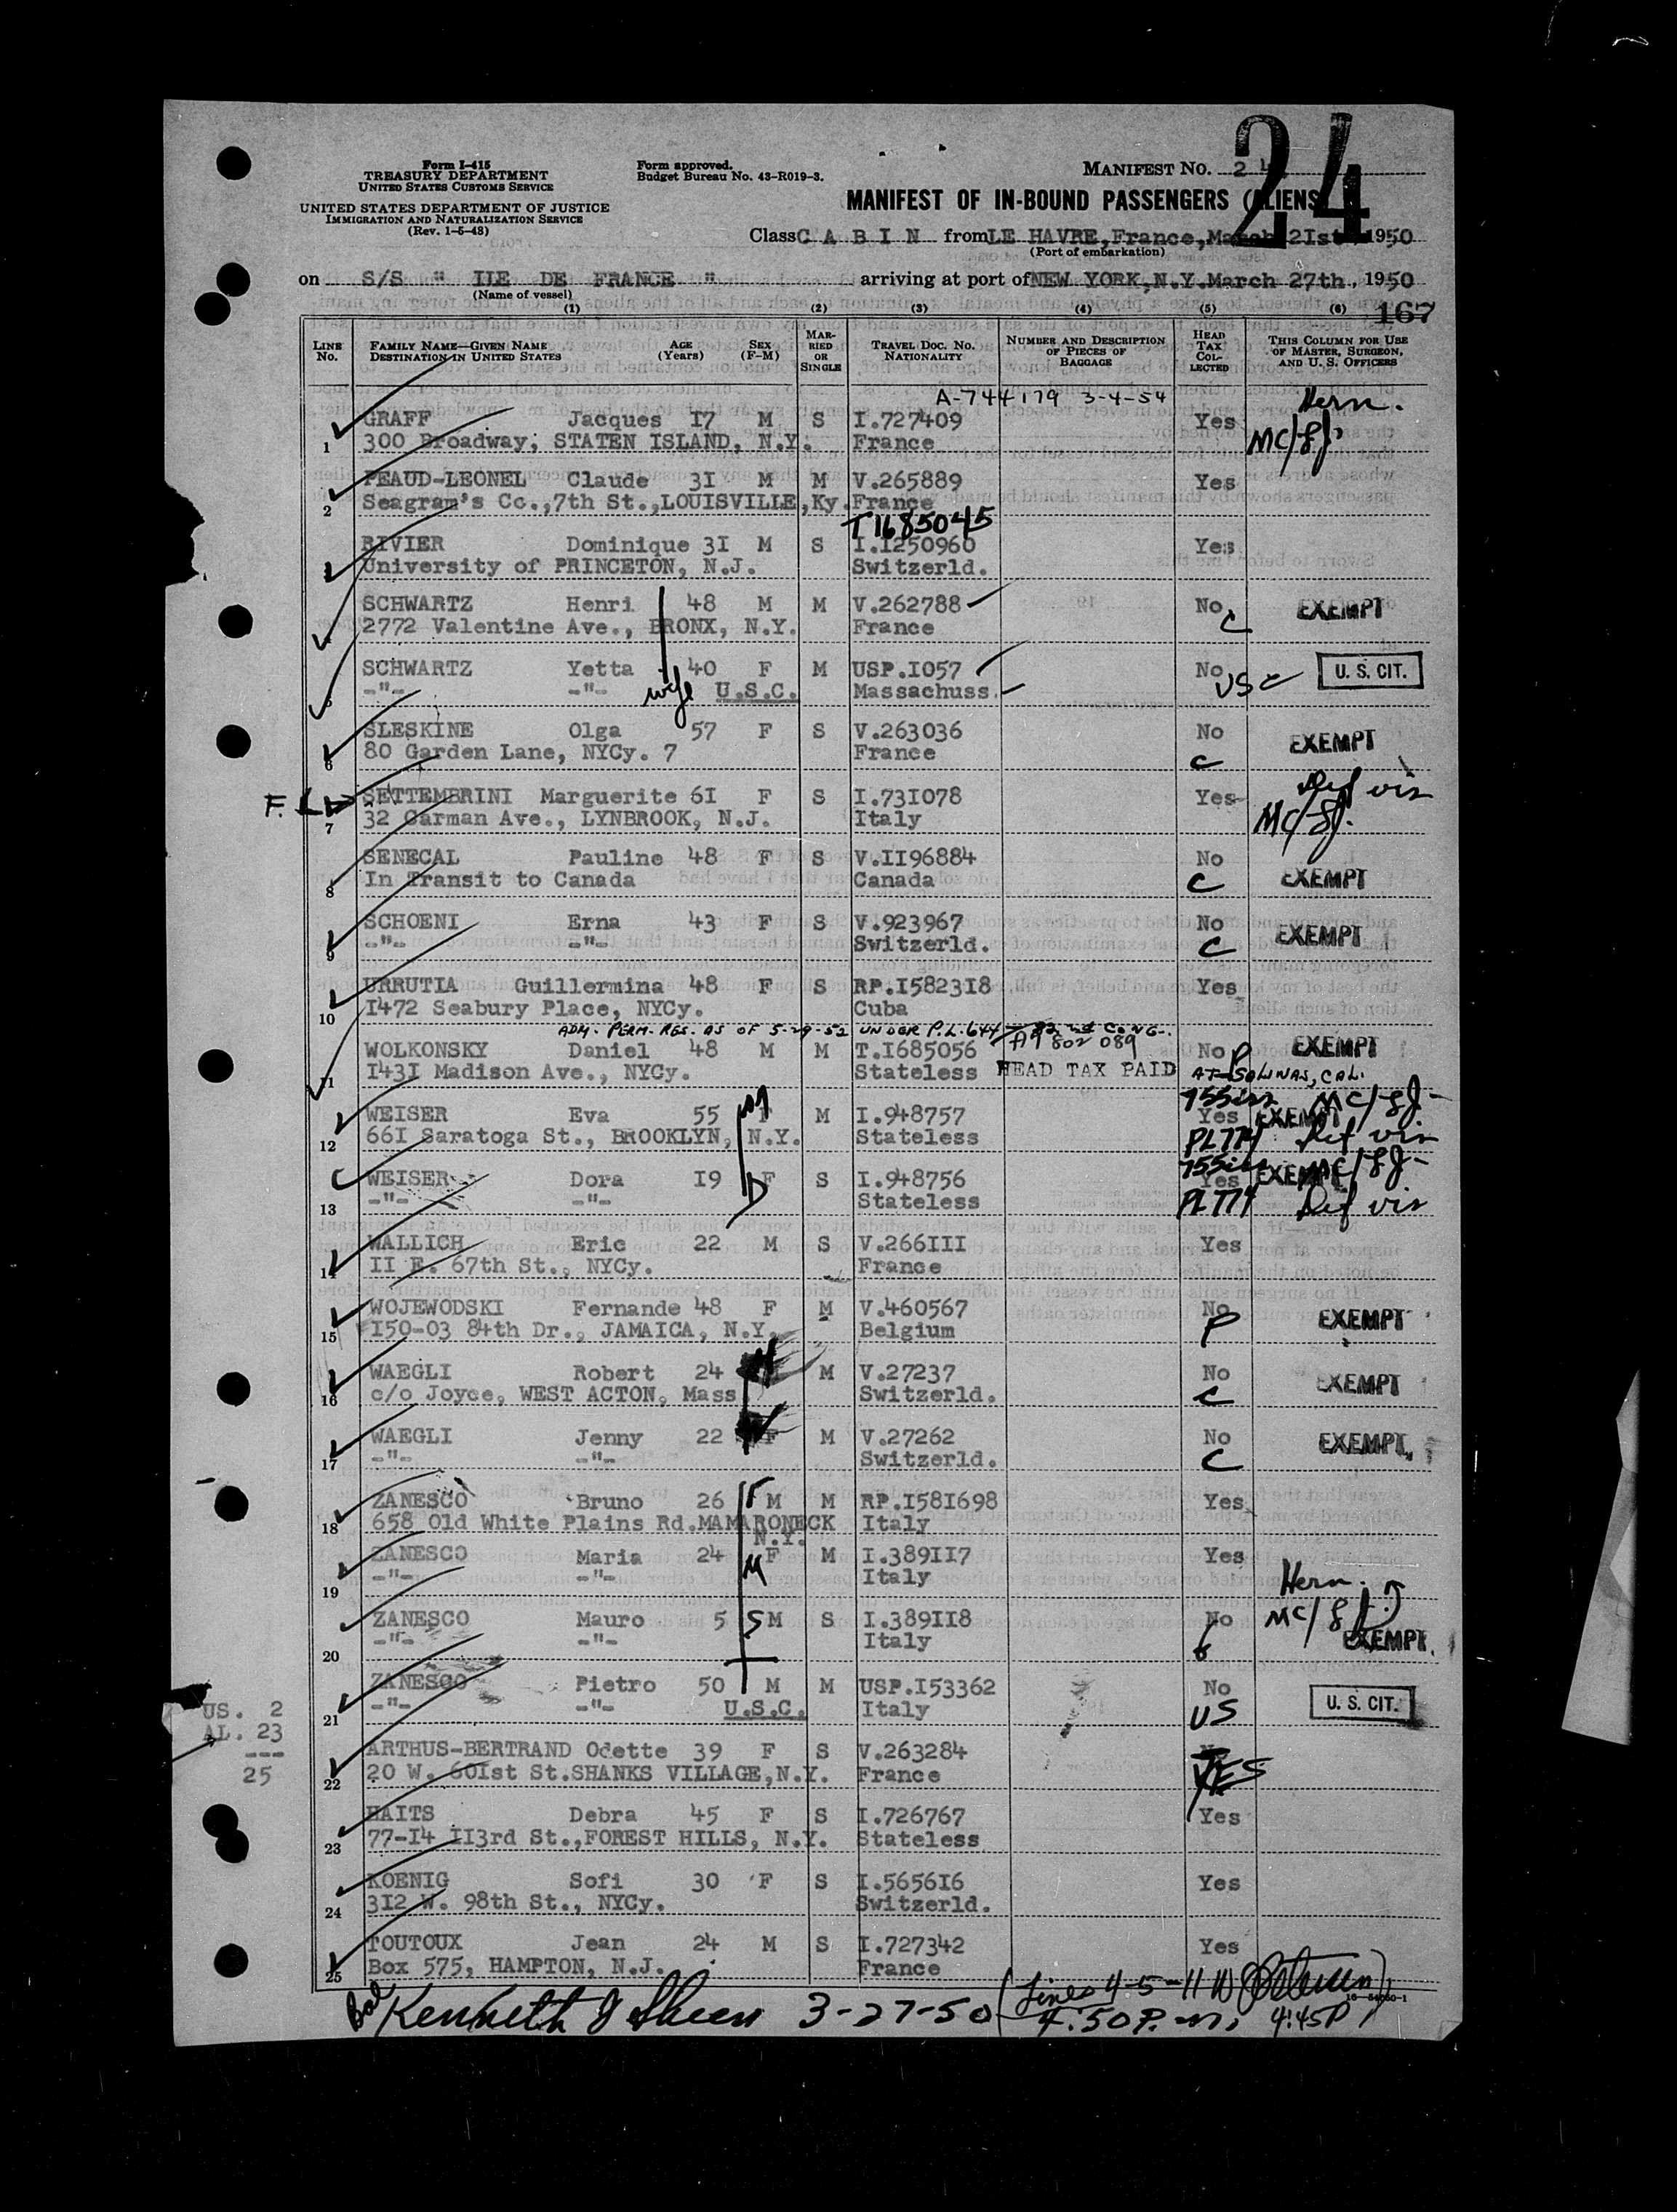 24
Form I-415
TREASURY DEPARTMENT
UNITED STATES CUSTOMS SERVICE
UNITED STATES DEPARTMENT OF JUSTICE
IMMIGRATION AND NATURALIZATION SERVICE
(Rev. 1-5-48)
Form approved.
Budget Bureau No. 43-R019-3.
MANIFEST NO. 24
MANIFEST OF IN-BOUND PASSENGERS (ALIENS)
Class C A B I N from LE HAVRE, France, March 2Ist, 1950
(Port of embarkation)
on S/S " ILE DE FRANCE " arriving at port of NEW YORK, N.Y. March 27th, 1950
(Name of vessel)
(1) (2) (3) (4) (5) (6) 167
LINE No. FAMILY NAME—GIVEN NAME DESTINATION IN UNITED STATES AGE (Years) SEX (F-M) MARRIED OR SINGLE TRAVEL DOC. NO. NATIONALITY NUMBER AND DESCRIPTION OF PIECES OF BAGGAGE HEAD TAX COLLECTED THIS COLUMN FOR USE OF MASTER, SURGEON, AND U. S. OFFICERS
A-744179 3-4-54 Hern.
GRAFF Jacques I7 M S I.727409 Yes
1 300 Broadway, STATEN ISLAND, N.Y. France
PEAUD-LEONEL Claude 3I M M V.265889 Yes
2 Seagram's Co.,7th St.,LOUISVILLE,Ky. France
T1685045
RIVIER Dominique 3I M S I.I250960 Yes
University of PRINCETON, N.J. Switzerld.
SCHWARTZ Henri 48 M M V.262788 No C EXEMPT
2772 Valentine Ave., BRONX, N.Y. France
SCHWARTZ Yetta 40 F M USP.I057 No USC U. S. CIT.
-"- -"- wife U.S.C. Massachuss.
SLESKINE Olga 57 F S V.263036 No EXEMPT
6 80 Garden Lane, NYCy. 7 France C
F. SETTEMBRINI Marguerite 6I F S I.73I078 Yes Def vis
7 32 Carman Ave., LYNBROOK, N.J. Italy
SENECAL Pauline 48 F S V.II96884 No
8 In Transit to Canada Canada C EXEMPT
SCHOENI Erna 43 F S V.923967 No
9 -"- -"- Switzerld. C EXEMPT
URRUTIA Guillermina 48 F S RP.I5823I8 Yes
10 I472 Seabury Place, NYCy. Cuba
ADM. PERM. RES. AS OF 5-29-52 UNDER P.L. 644 - 82nd CONG.
A7 802 089
WOLKONSKY Daniel 48 M M T.I685056 No P EXEMPT
11 I43I Madison Ave., NYCy. Stateless HEAD TAX PAID AT SALINAS, CAL.
WEISER Eva 55 F M I.948757 Yes EXEMPT
12 66I Saratoga St., BROOKLYN, N.Y. Stateless PL774 Def vis
WEISER Dora I9 F S I.948756 Yes EXEMPT
13 -"- -"- D Stateless PL774 Def vis
WALLICH Eric 22 M S V.266III Yes
14 II E. 67th St., NYCy. France
WOJEWODSKI Fernande 48 F M V.460567 No EXEMPT
15 I50-03 84th Dr., JAMAICA, N.Y. Belgium P
WAEGLI Robert 24 M V.27237 No EXEMPT
16 c/o Joyce, WEST ACTON, Mass Switzerld. C
WAEGLI Jenny 22 F M V.27262 No EXEMPT
17 -"- -"- Switzerld. C
ZANESCO Bruno 26 F M M RP.I58I698 Yes
18 658 Old White Plains Rd.MAMARONECK N.Y. Italy
ZANESCO Maria 24 M F M I.389II7 Yes
19 -"- -"- Italy Hern.
ZANESCO Mauro 5 S M S I.389II8 No
20 -"- -"- Italy EXEMPT
ZANESCO Pietro 50 M M USP.I53362 No U. S. CIT.
21 -"- -"- U.S.C. Italy US
US. 2
AL. 23
---
25
ARTHUS-BERTRAND Odette 39 F S V.263284 No
22 20 W. 60Ist St.SHANKS VILLAGE,N.Y. France YES
HAITS Debra 45 F S I.726767 Yes
23 77-I4 II3rd St.,FOREST HILLS, N.Y. Stateless
KOENIG Sofi 30 F S I.5656I6 Yes
24 3I2 W. 98th St., NYCy. Switzerld.
TOUTOUX Jean 24 M S I.727342 Yes
25 Box 575, HAMPTON, N.J. France
Kenneth J Sheen 3-27-50 (Lines 4-5-11
4:50 P.m. 4:45P